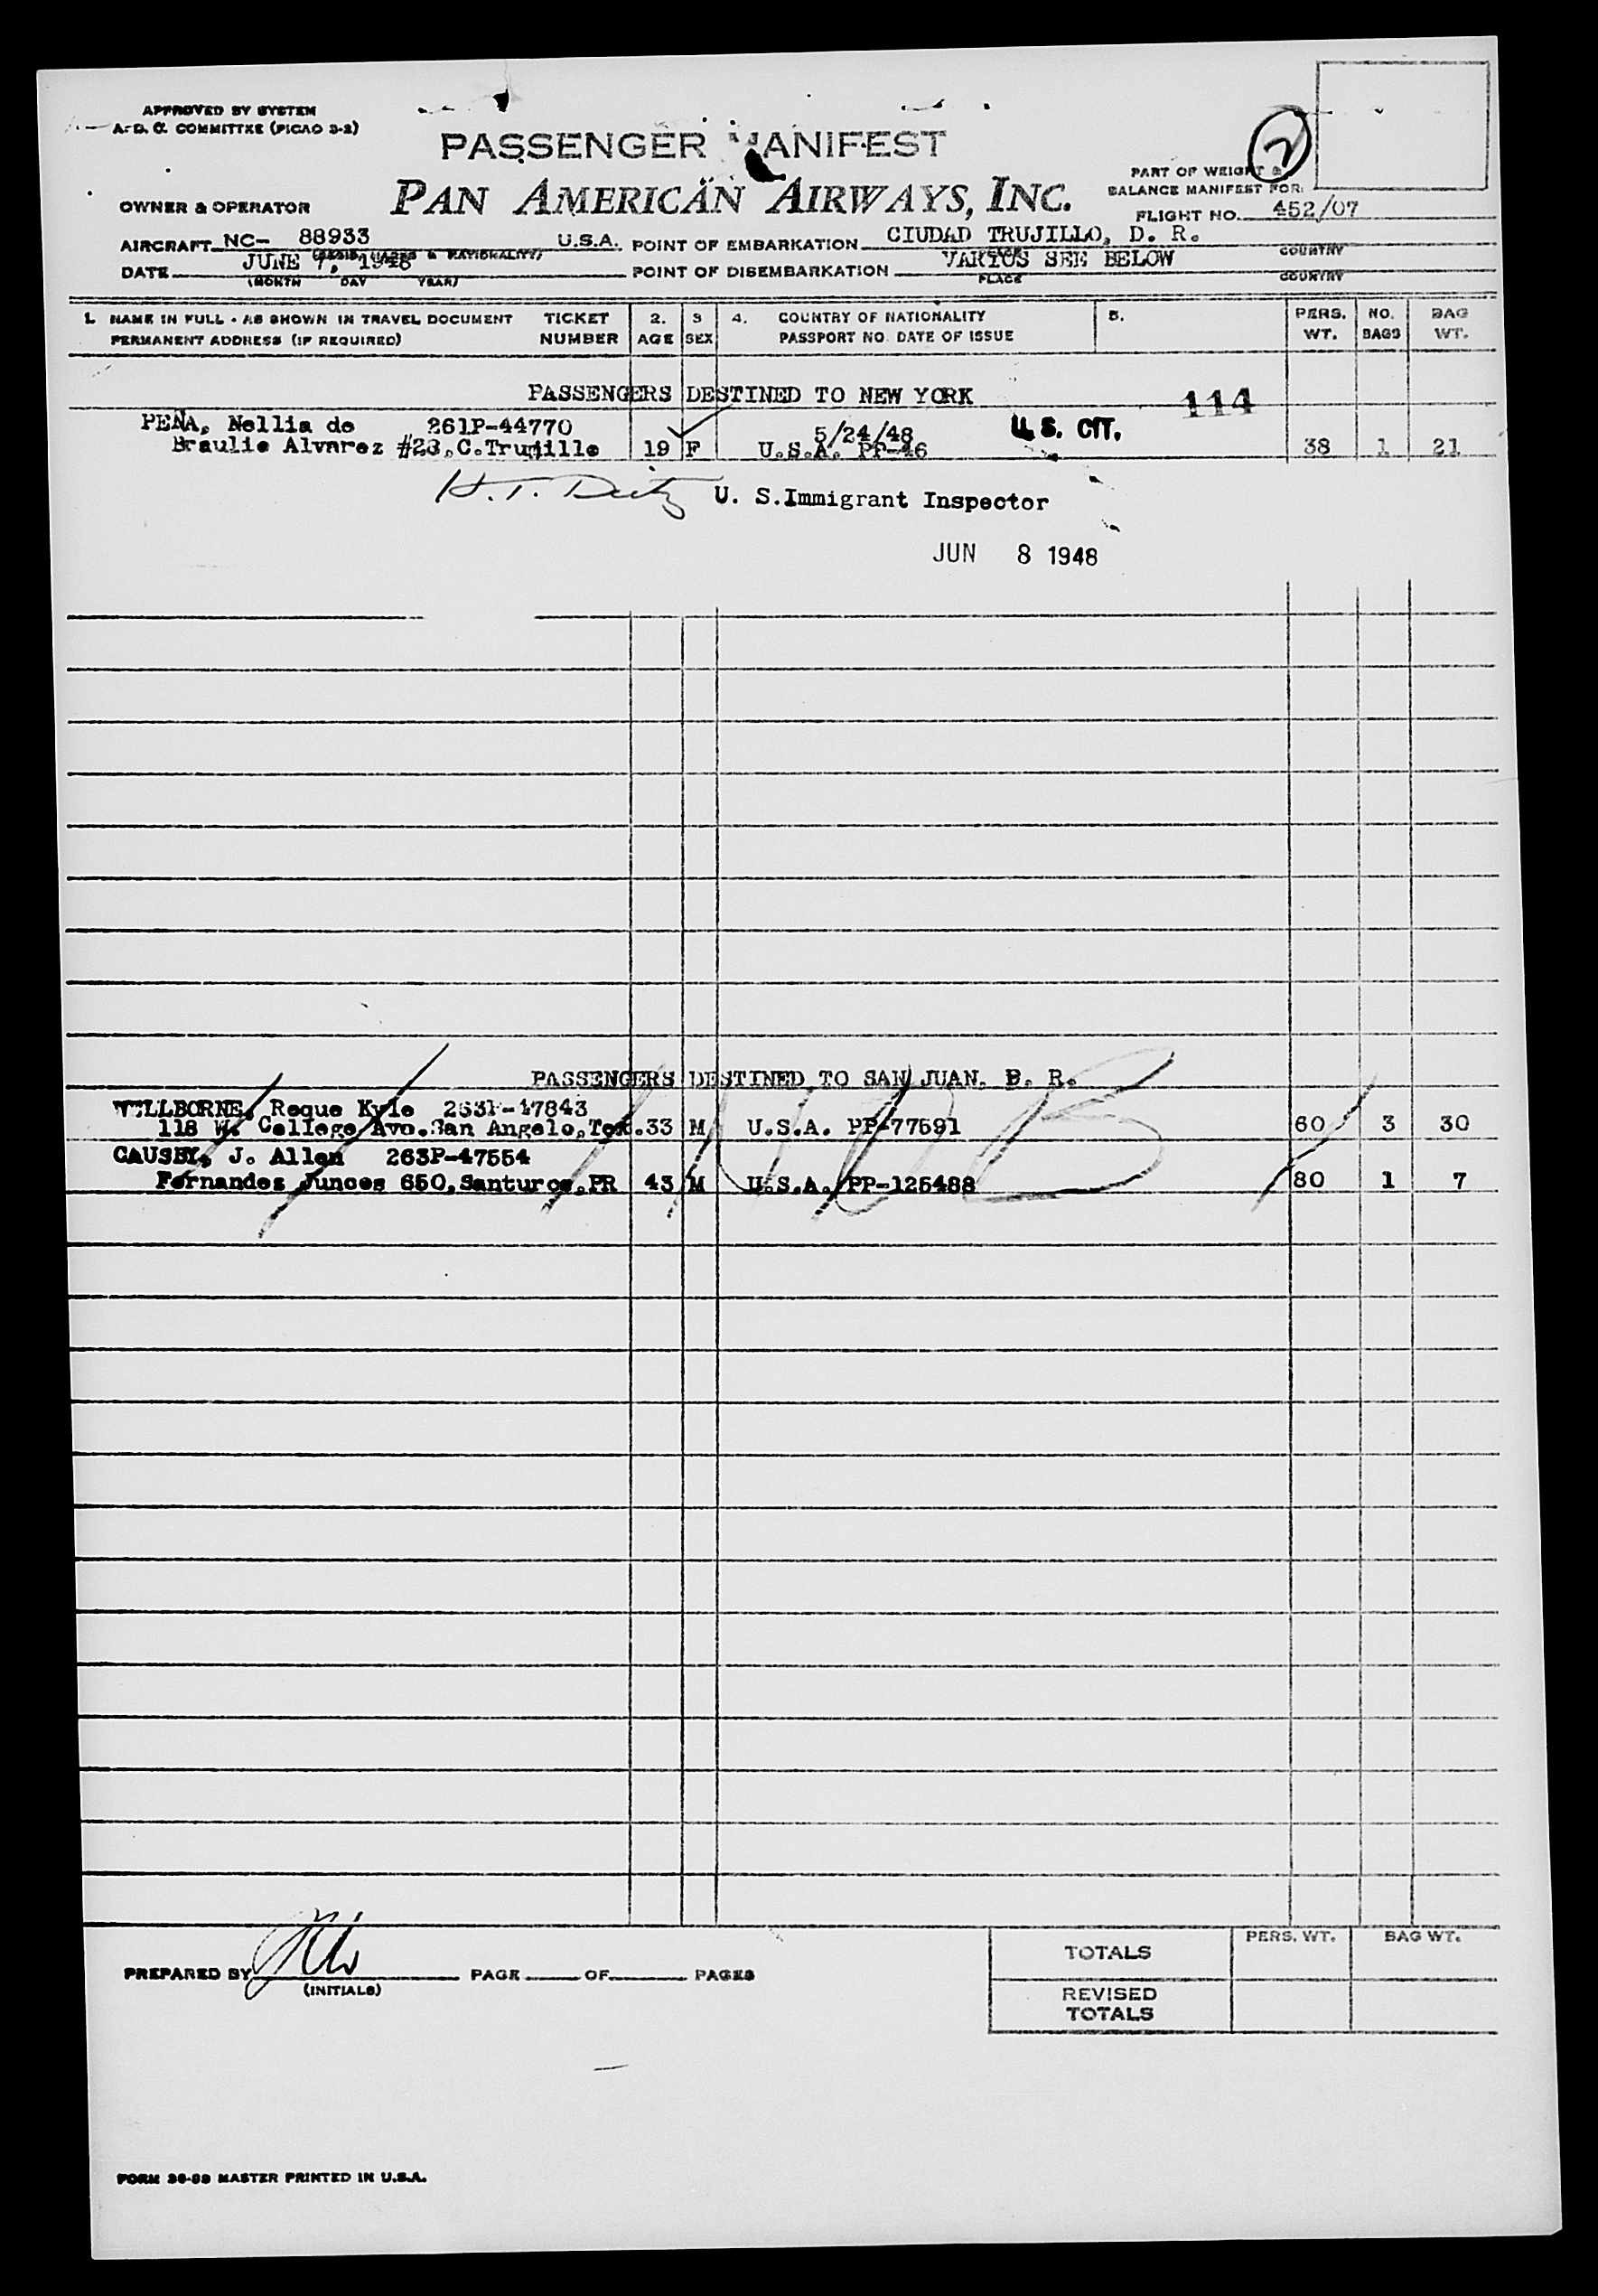 APPROVED BY SYSTEM
A. D. C. COMMITTEE (PICAO 3-2)
PASSENGER MANIFEST
2
PART OF WEIGHT &
BALANCE MANIFEST FOR:
OWNER & OPERATOR PAN AMERICAN AIRWAYS, INC.
FLIGHT NO. 452/07
AIRCRAFT NC- 88933 U.S.A. POINT OF EMBARKATION CIUDAD TRUJILLO, D. R.
COUNTRY
DATE JUNE 7, 1948 POINT OF DISEMBARKATION VARIOUS SEE BELOW
(MONTH DAY YEAR) PLACE COUNTRY
1. NAME IN FULL - AS SHOWN IN TRAVEL DOCUMENT TICKET 2. 3 4. COUNTRY OF NATIONALITY 5. PERS. NO. BAG
PERMANENT ADDRESS (IF REQUIRED) NUMBER AGE SEX PASSPORT NO. DATE OF ISSUE WT. BAGS WT.
PASSENGERS DESTINED TO NEW YORK 114
PENA, Nellia de 261P-44770 5/24/48 U.S. CIT.
Braulio Alvarez #23,C.Trujillo 19 F U.S.A. PP-46 38 1 21
H. T. U. S.Immigrant Inspector
JUN 8 1948
PASSENGERS DESTINED TO SAN JUAN, P. R.
WELLBORNE, Roque Kyle 263P-47843
118 W. College Ave.San Angelo,Tex. 33 M U.S.A. PP-77591 60 3 30
CAUSEY, J. Allen 263P-47554
Fernandez Junces 650,Santurce,PR 43 M U.S.A. PP-125488 80 1 7
PERS. WT. BAG WT.
TOTALS
PREPARED BY PAGE OF PAGES
(INITIALS)
REVISED
TOTALS
FORM 36-93 MASTER PRINTED IN U.S.A.